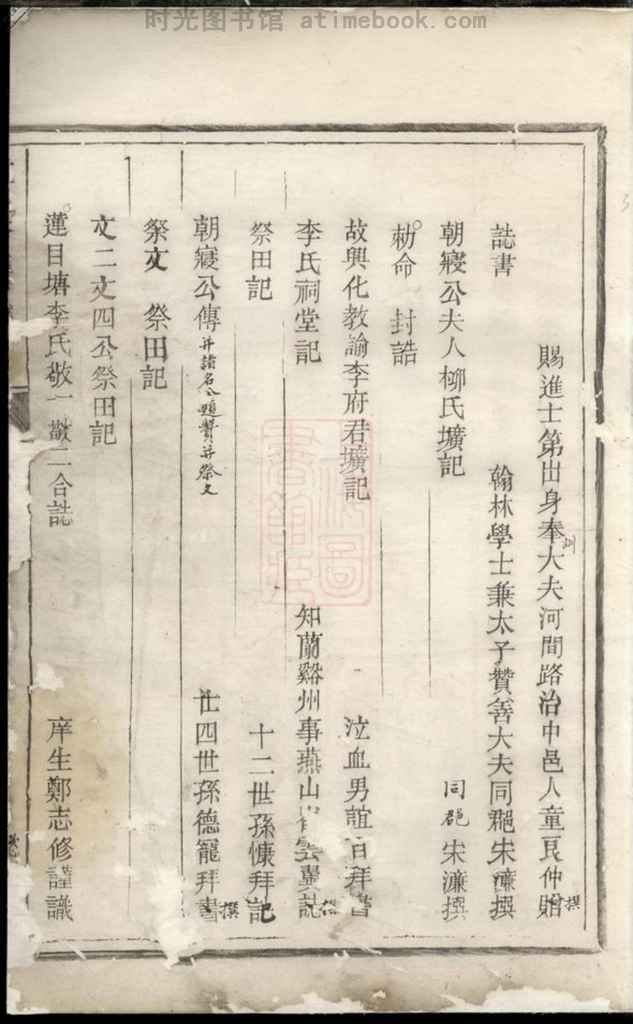 时光图书馆 atimebook.com
賜進士第出身奉大夫河間路治中邑人童良仲贈撰
誌書 翰林學士兼太子贊善大夫同郡宋濂撰
朝寢公夫人柳氏壙記 同郡宋濂撰
勅命 封誥
故興化教諭李府君壙記 泣血男誼百拜書
李氏祠堂記 知蘭谿州事燕山雲翼記撰
祭田記 十二世孫慷拜記
朝寢公傳并諸名公題贊并祭文 廿四世孫德寵拜書撰
祭文 祭田記
文二文四公祭田記
蓮目塘李氏敬一敬二合誌 庠生鄭志修謹識